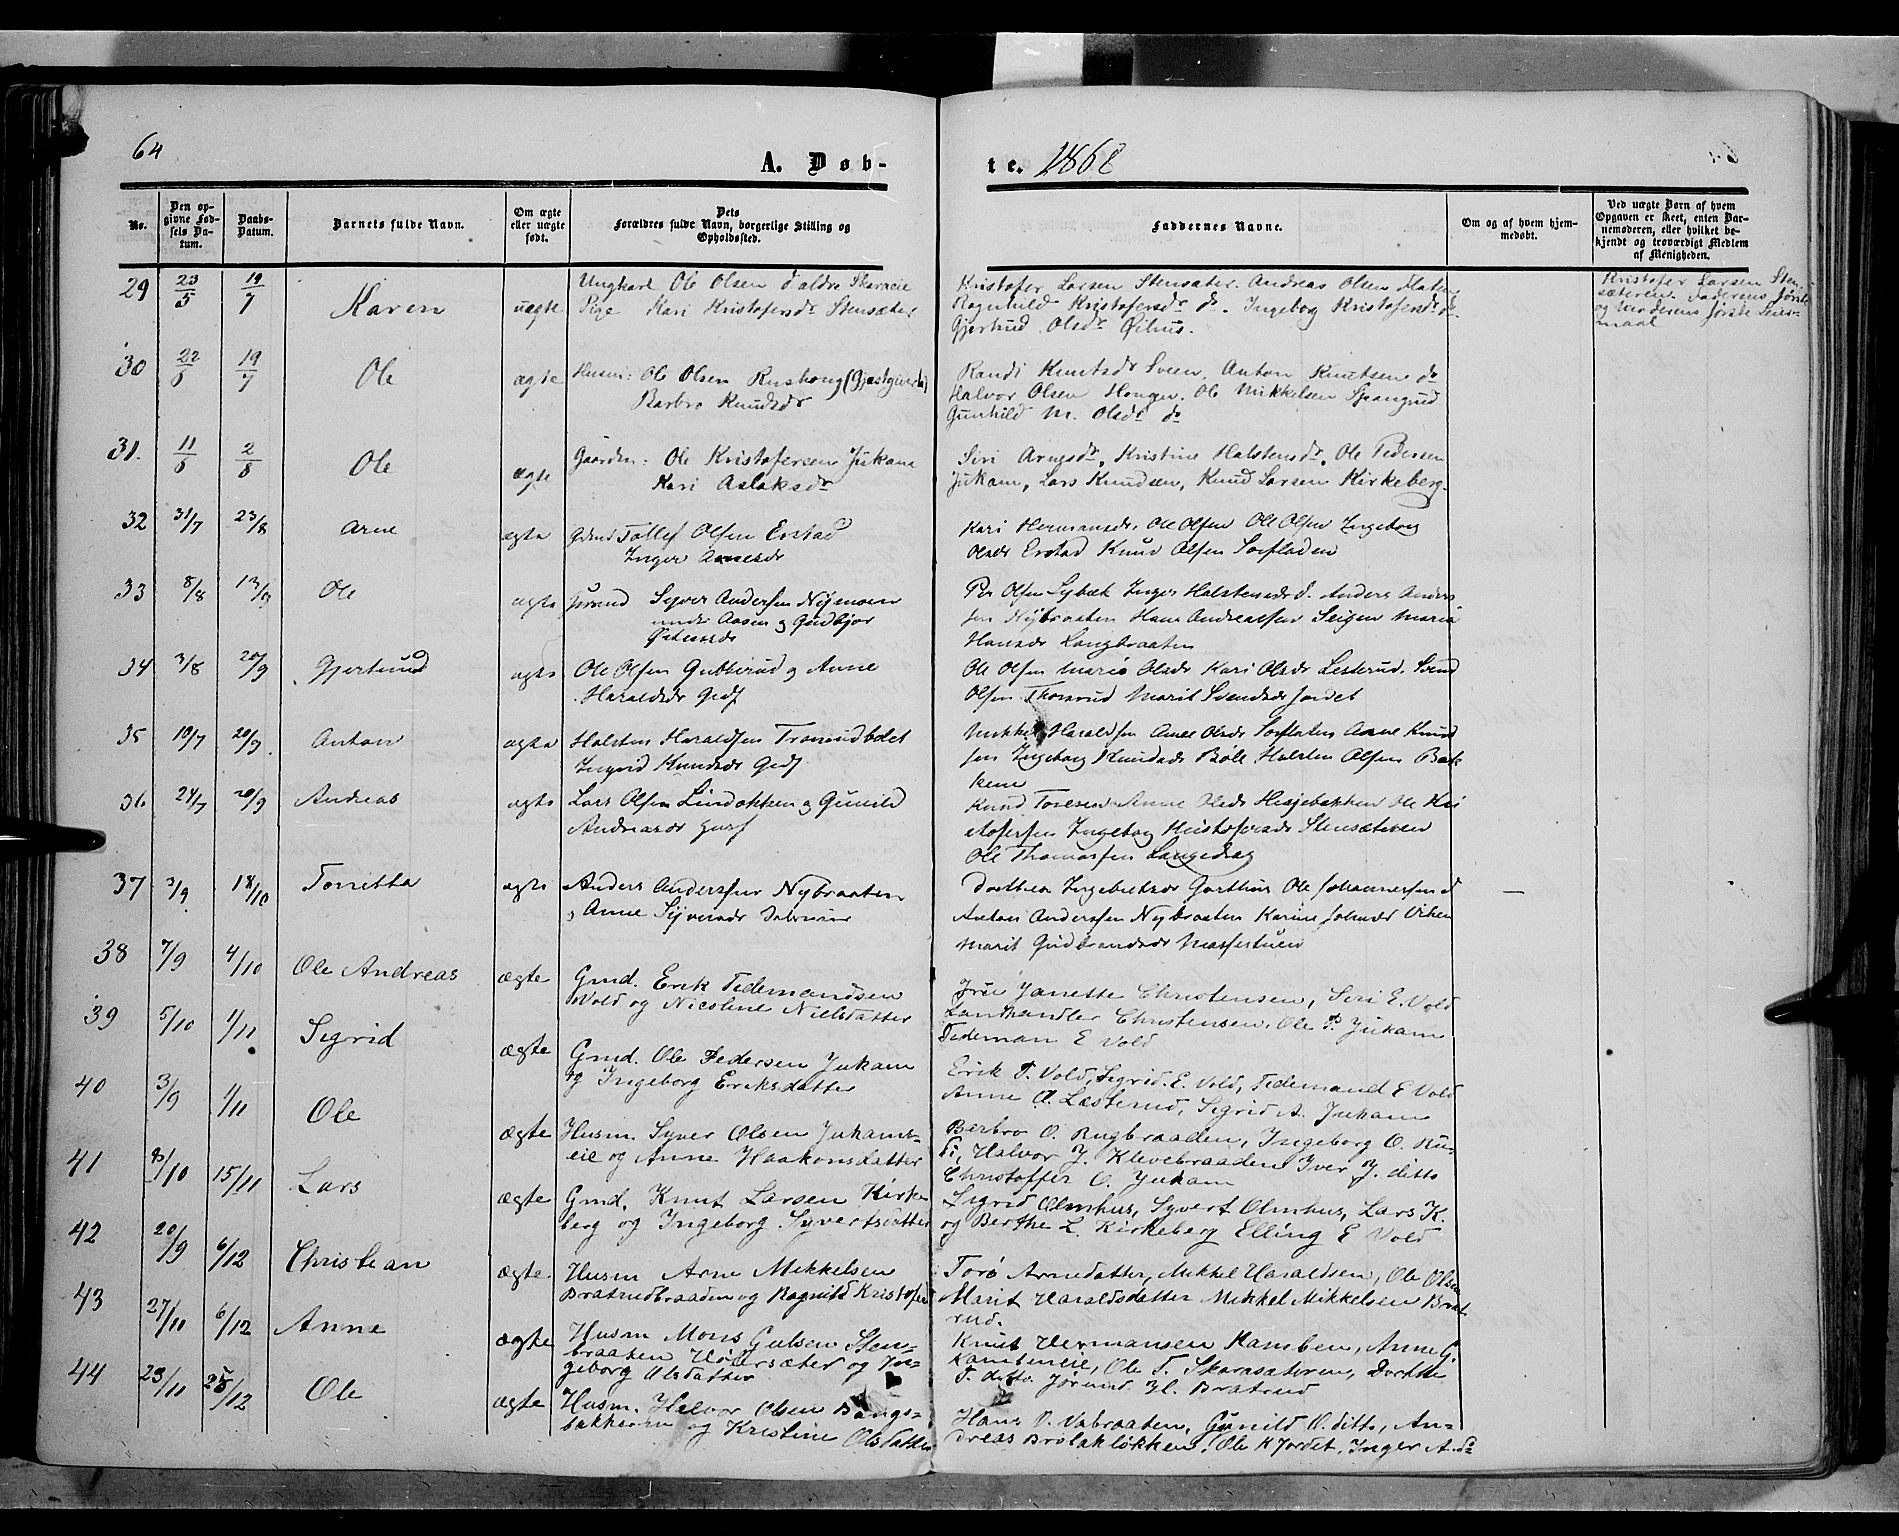 64
A. Døb-
te. 1868
No.
Den opgivne Fødsels Datum.
Daabs-Datum.
Barnets fulde Navn.
Om ægte eller uægte født.
Dets Forældres fulde Navn, borgerlige Stilling og Opholdssted.
Faddernes Navne.
Om og af hvem hjemmedøbt.
Ved uægte Børn af hvem Opgaven er skeet, enten Barnemoderen, eller hvilket bekjendt og troværdigt Medlem af Menigheden.
29 23/5 19/7 Karen uægte
Ungkarl Ole Olsen Skaraeie
Pige Kari Kristofersdr Stensæter
Kristofer Larsen Stensæter. Andreas Olsen
Ragnhild Kristofersdr do. Ingeborg Kristofersdr do.
Gjertrud Olsdr
Kristofer Larsen Sten-
sæteren. Faderens første
og Moderens første Leier-
maal
30 22/6 19/7 Ole ægte
Husm: Ole Olsen Rushong (Gjæstgiver)
Barbro Knudsdr
Randi Knutsdr Sveen, Anton Knutsen do
Halvor Olsen Hongen. Ole Mikkelsen Spangrud
Gunhild M. Olsdr do
31. 11/6 2/8 Ole ægte
Gaardm: Ole Kristofersen Jukam
Kari Aslaksdr
Siri Arnesdr, Kristine Halstensdr, Ole Pedersen
Jukam, Lars Knudsen, Knud Larsen Kirkeberg.
32 31/7 23/8 Arne ægte
Gdmd Tollef Olsen Erstad
Inger Arnesdr
Kari Hermansdr, Ole Olsen Ole Olsen Ingeborg
Olsdr Erstad Knud Olsen Sorfladen
33 8/8 13/9 Ole ægte
Syver Andersen Nymoen
under Aasen og Gudbjør
Per Olsen Sybæk Inger Halstensdr d. Anders Anders
sen Nybraaten Hans Andreassen Seigen Maria
Hansdr Langbraaten
34 3/8 20/9 Gjertrud ægte
Ole Olsen Gubberud og Anne
Haraldsdr Gdf
Ole Olsen Marie Olsdr Kari Olsdr Lesterud. Svend
Olsen Thomrud Marit Svendsdr Jordet
35 19/7 20/9 Anton ægte
Halsten Haraldsen Tronrudbølet
Ingrid Knudsdr Gdf
Mikkel Haraldsen Anne Olsdr Sorflaten Arne Knud
sen Ingeborg Knudsdr Bøle Halsten Olsen Bak
kene
36 24/7 20/9 Andreas ægte
Lars Olsen Lindokken og Gunild
Andreasdr
Knud Tosesen Anne Olsdr Hesjebakken Ole Kri
stofersen Ingeborg Kristofersdr Stensæteren
Ole Thomassen Langedrag
37 3/9 18/10 Torretta ægte
Anders Andersen Nybraaten
og Anne Syversdr
Dorthea Ingebretsdr Garthus Ole Johannessen d
Anton Andersen Nybraaten Karine Johnsdr Viken
Marit Gudbrandsdr Massestuen
—
38 7/9 4/10 Ole Andreas ægte
Gmd. Erik Tedemandsen
Vold og Nicoline Nielsdatter
Frue Janette Christensen, Siri E. Vold
Landhandler Christensen, Ole P. Jukam
Tedeman E Vold
39 5/10 1/11 Sigrid ægte
Gmd. Ole Pedersen Jukam
og Ingeborg Eriksdatter
Erik T. Vold, Sigrid. E. Vold, Tedemand E Vold
Anne O. Læsterud, Sigrid A. Jukam
40 3/9 1/11 Ole ægte
Husm. Syver Olsen Jukams-
eie og Anne Haakonsdatter
Berbro O. Rugbraaden, Ingeborg O. Ru-
Halvor J. Klevebraaden Iver J. ditto
Christoffer O. Jukam
41 15/11 Lars ægte
Gmd. Knut Larsen Kirke
berg og Ingeborg Syvertsdatter
Sigrid Olmhus, Syvert Olmhus, Lars K.
og Berthe L. Kirkeberg Elling E Vold
42 20/9 6/12 Christian ægte
Husm Arne Mikkelsen
Bratrudbraaden og Ragnild Kristofersd
Torø Arnedatter, Mikkel Haraldsen, Ole Olsen
Marit Haraldsdatter Mikkel Mikkelsen Brat
rud.
43 27/11 6/12 Anne ægte
Husm Mons Gulsen Sten-
braaten Høversæter og In-
geborg Olsdatter
Knut Hermansen Kamben, Anne G.
Kambeneie, Ole T. Skarasæteren, Dorthe
T. ditto. Jørund H. Bratrud
44 23/11 25/12 Ole ægte
Husm. Halvor Olsen Bangs-
bakkeren og Kristine Olsdatter
Hans O. Vabraaten, Gunild O. ditto, An-
dreas Brolakløkken, Ole K Jordet, Inger A.dr